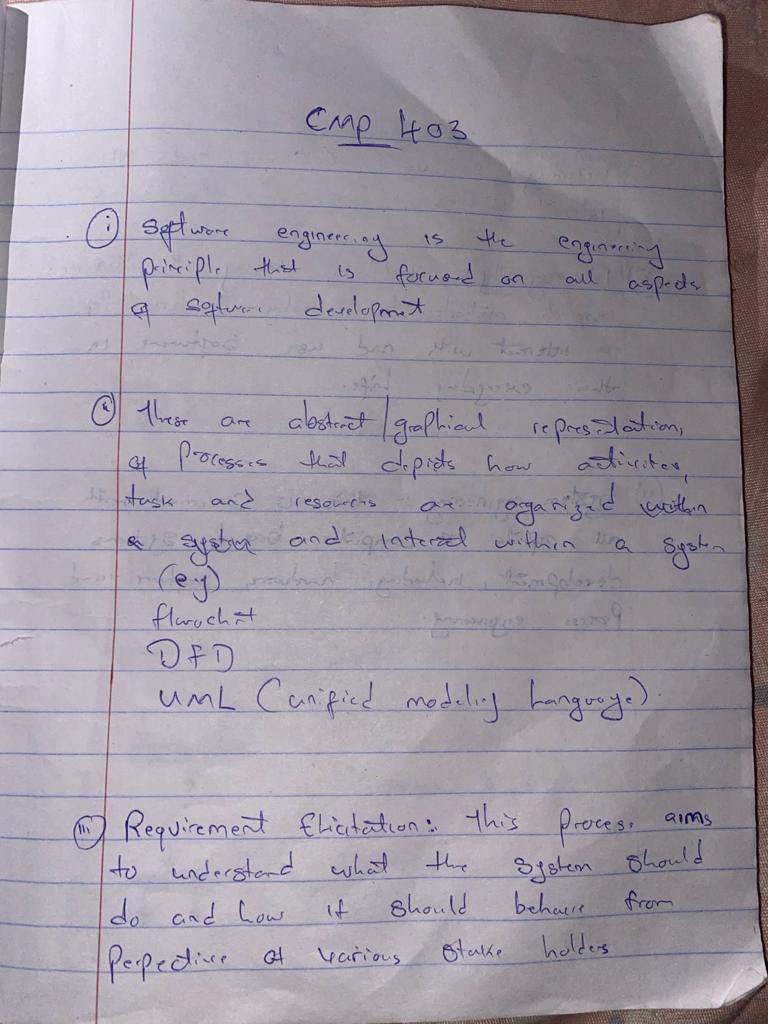 CMP 403
(i) Software engineering is the engineering
principle that is focused on all aspects
of software development
(ii) These are abstract/graphical representation,
of Processes that depicts how activities,
task and resources are organized within
a system and interact within a system
(e.g)
flowchart
DFD
UML (unified modeling Language).
(iii) Requirement Elicitation: This process aims
to understand what the system should
do and how it should behave from
perpective of various stake holders